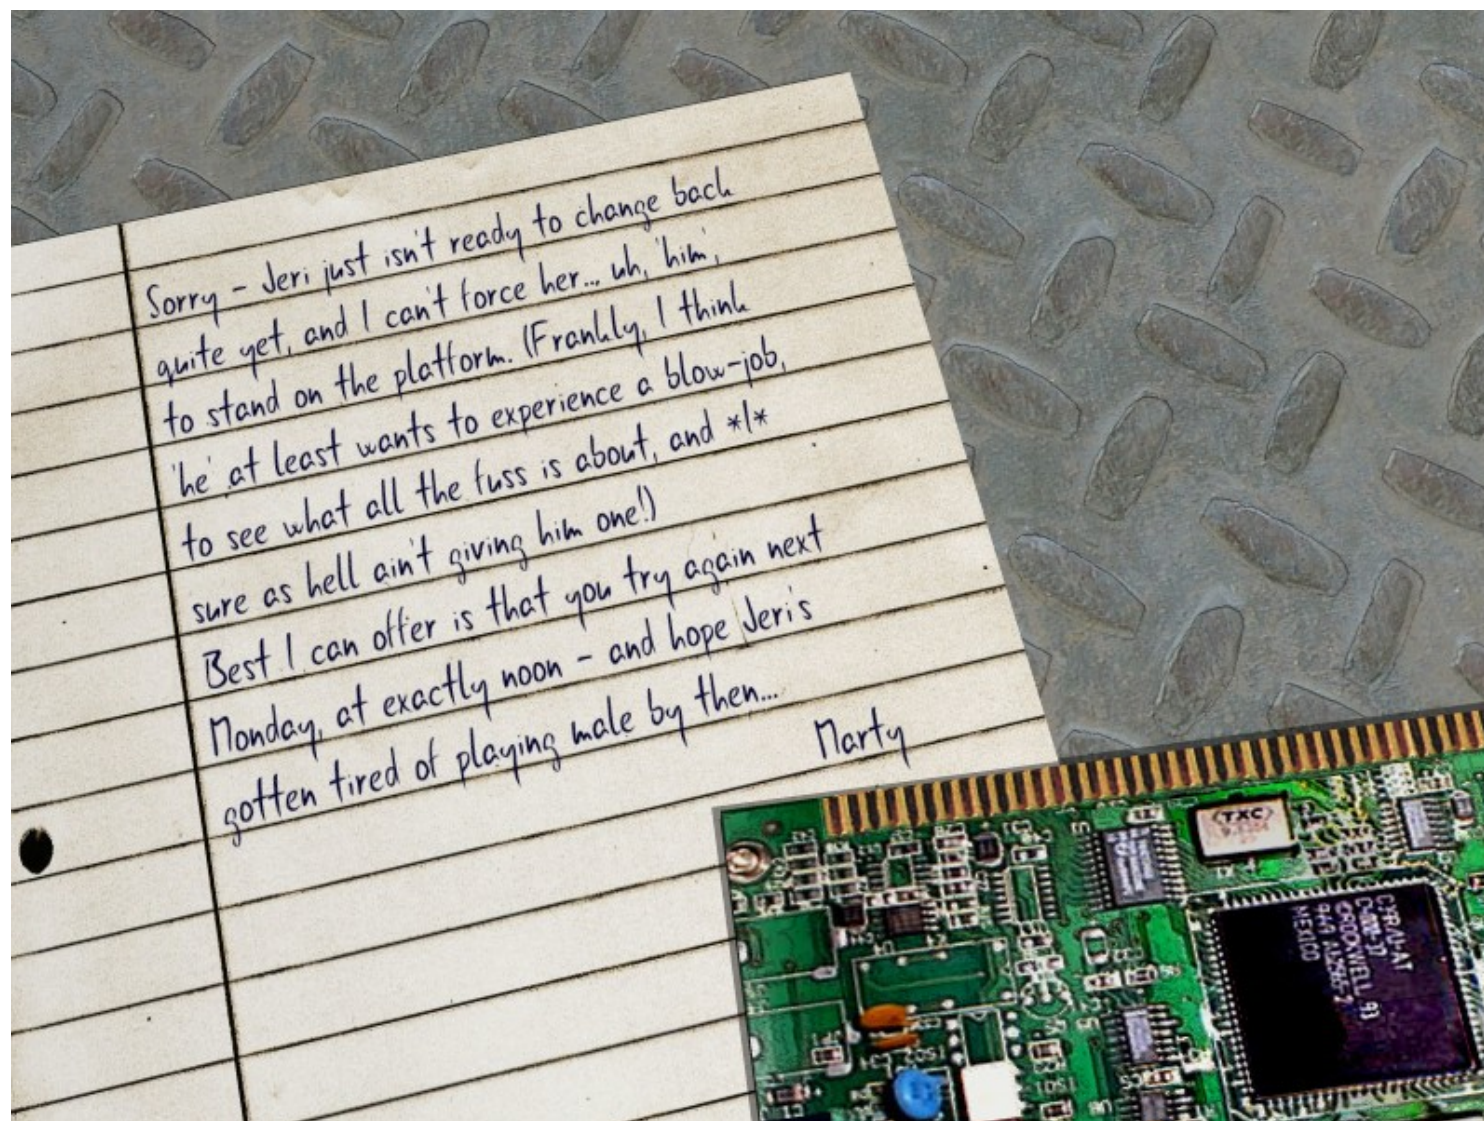 Sorry - Jeri just isn't ready to change back
quite yet, and I can't force her... uh, 'him',
to stand on the platform. (Frankly, I think
'he' at least wants to experience a blow-job,
to see what all the fuss is about, and *I*
sure as hell ain't giving him one!)
Best I can offer is that you try again next
Monday, at exactly noon - and hope Jeri's
gotten tired of playing male by then...
Marty
TXC
ROCKWELL 93
MEXICO